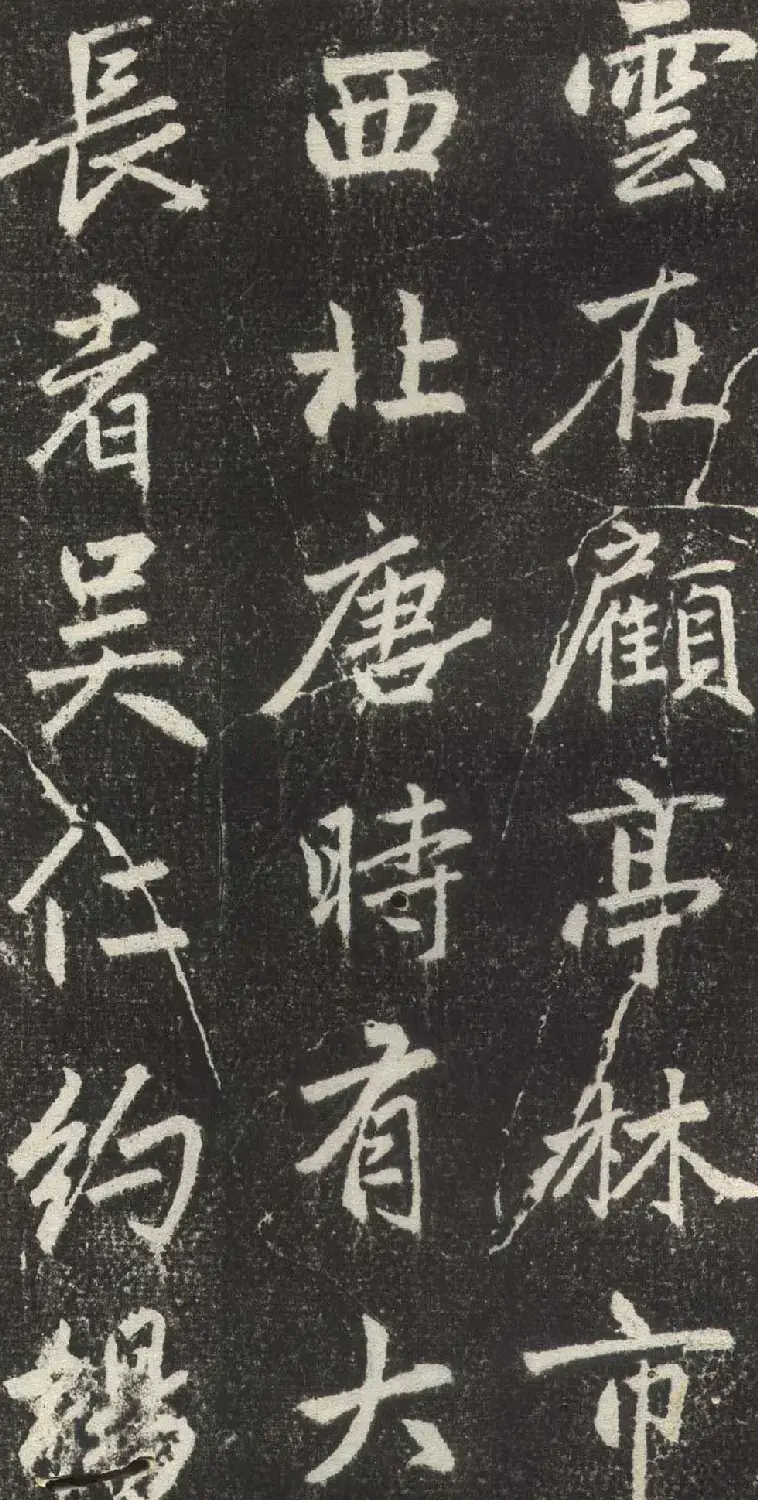 雲在顧亭林市
西北唐時有大
長者吳仕約